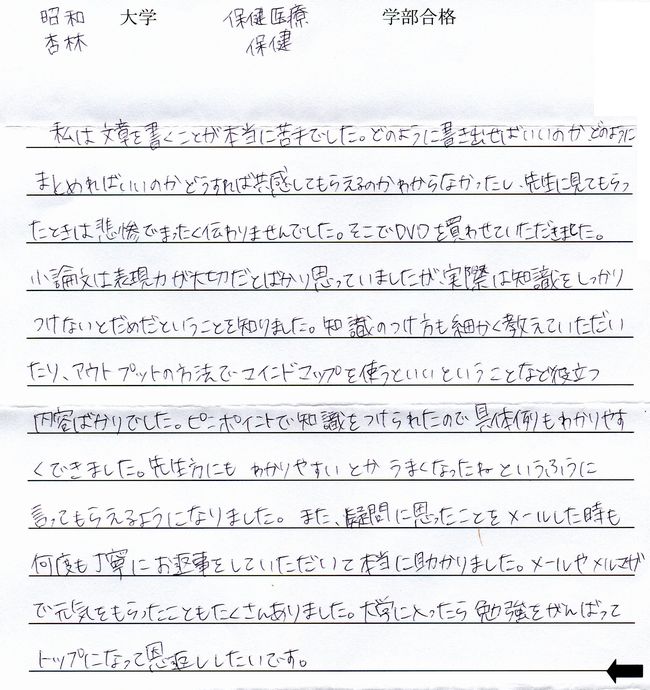 昭和 大学 保健医療 学部合格
杏林 保健
私は文章を書くことが本当に苦手でした。どのように書き出せばいいのか、どのように
まとめればいいのかどうすれば共感してもらえるのかわからなかったし、先生に見てもらっ
たときは悲惨でまったく伝わりませんでした。そこでDVDを買わせていただきました。
小論文は表現力が大切だとばかり思っていましたが、実際は知識をしっかり
つけないとだめだということを知りました。知識のつけ方も細かく教えていただい
たり、アウトプットの方法でマインドマップを使うといいということなど役立つ
内容ばかりでした。ピンポイントで知識をつけられたので具体例もわかりやす
くできました。先生方にもわかりやすいとかうまくなったねというふうに
言ってもらえるようになりました。また、疑問に思ったことをメールした時も
何度も丁寧にお返事をしていただいて本当に助かりました。メールやメルマガ
で元気をもらったこともたくさんありました。大学に入ったら勉強をがんばって
トップになって恩返ししたいです。